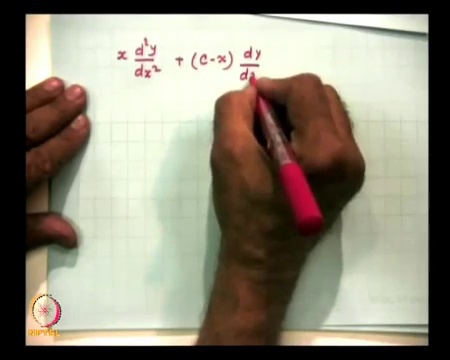 x d²y/dx² + (c-x) dy/dx
NPTEL